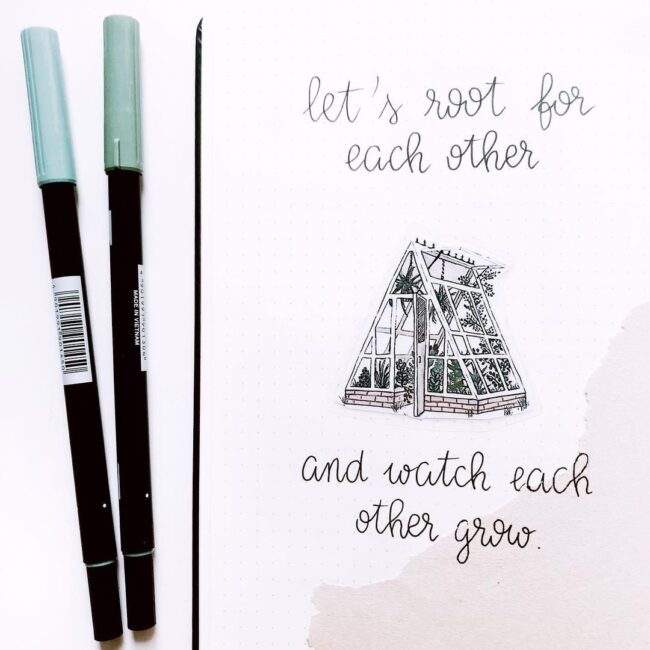 let's root for
each other
and watch each
other grow.
MADE IN VIETNAM